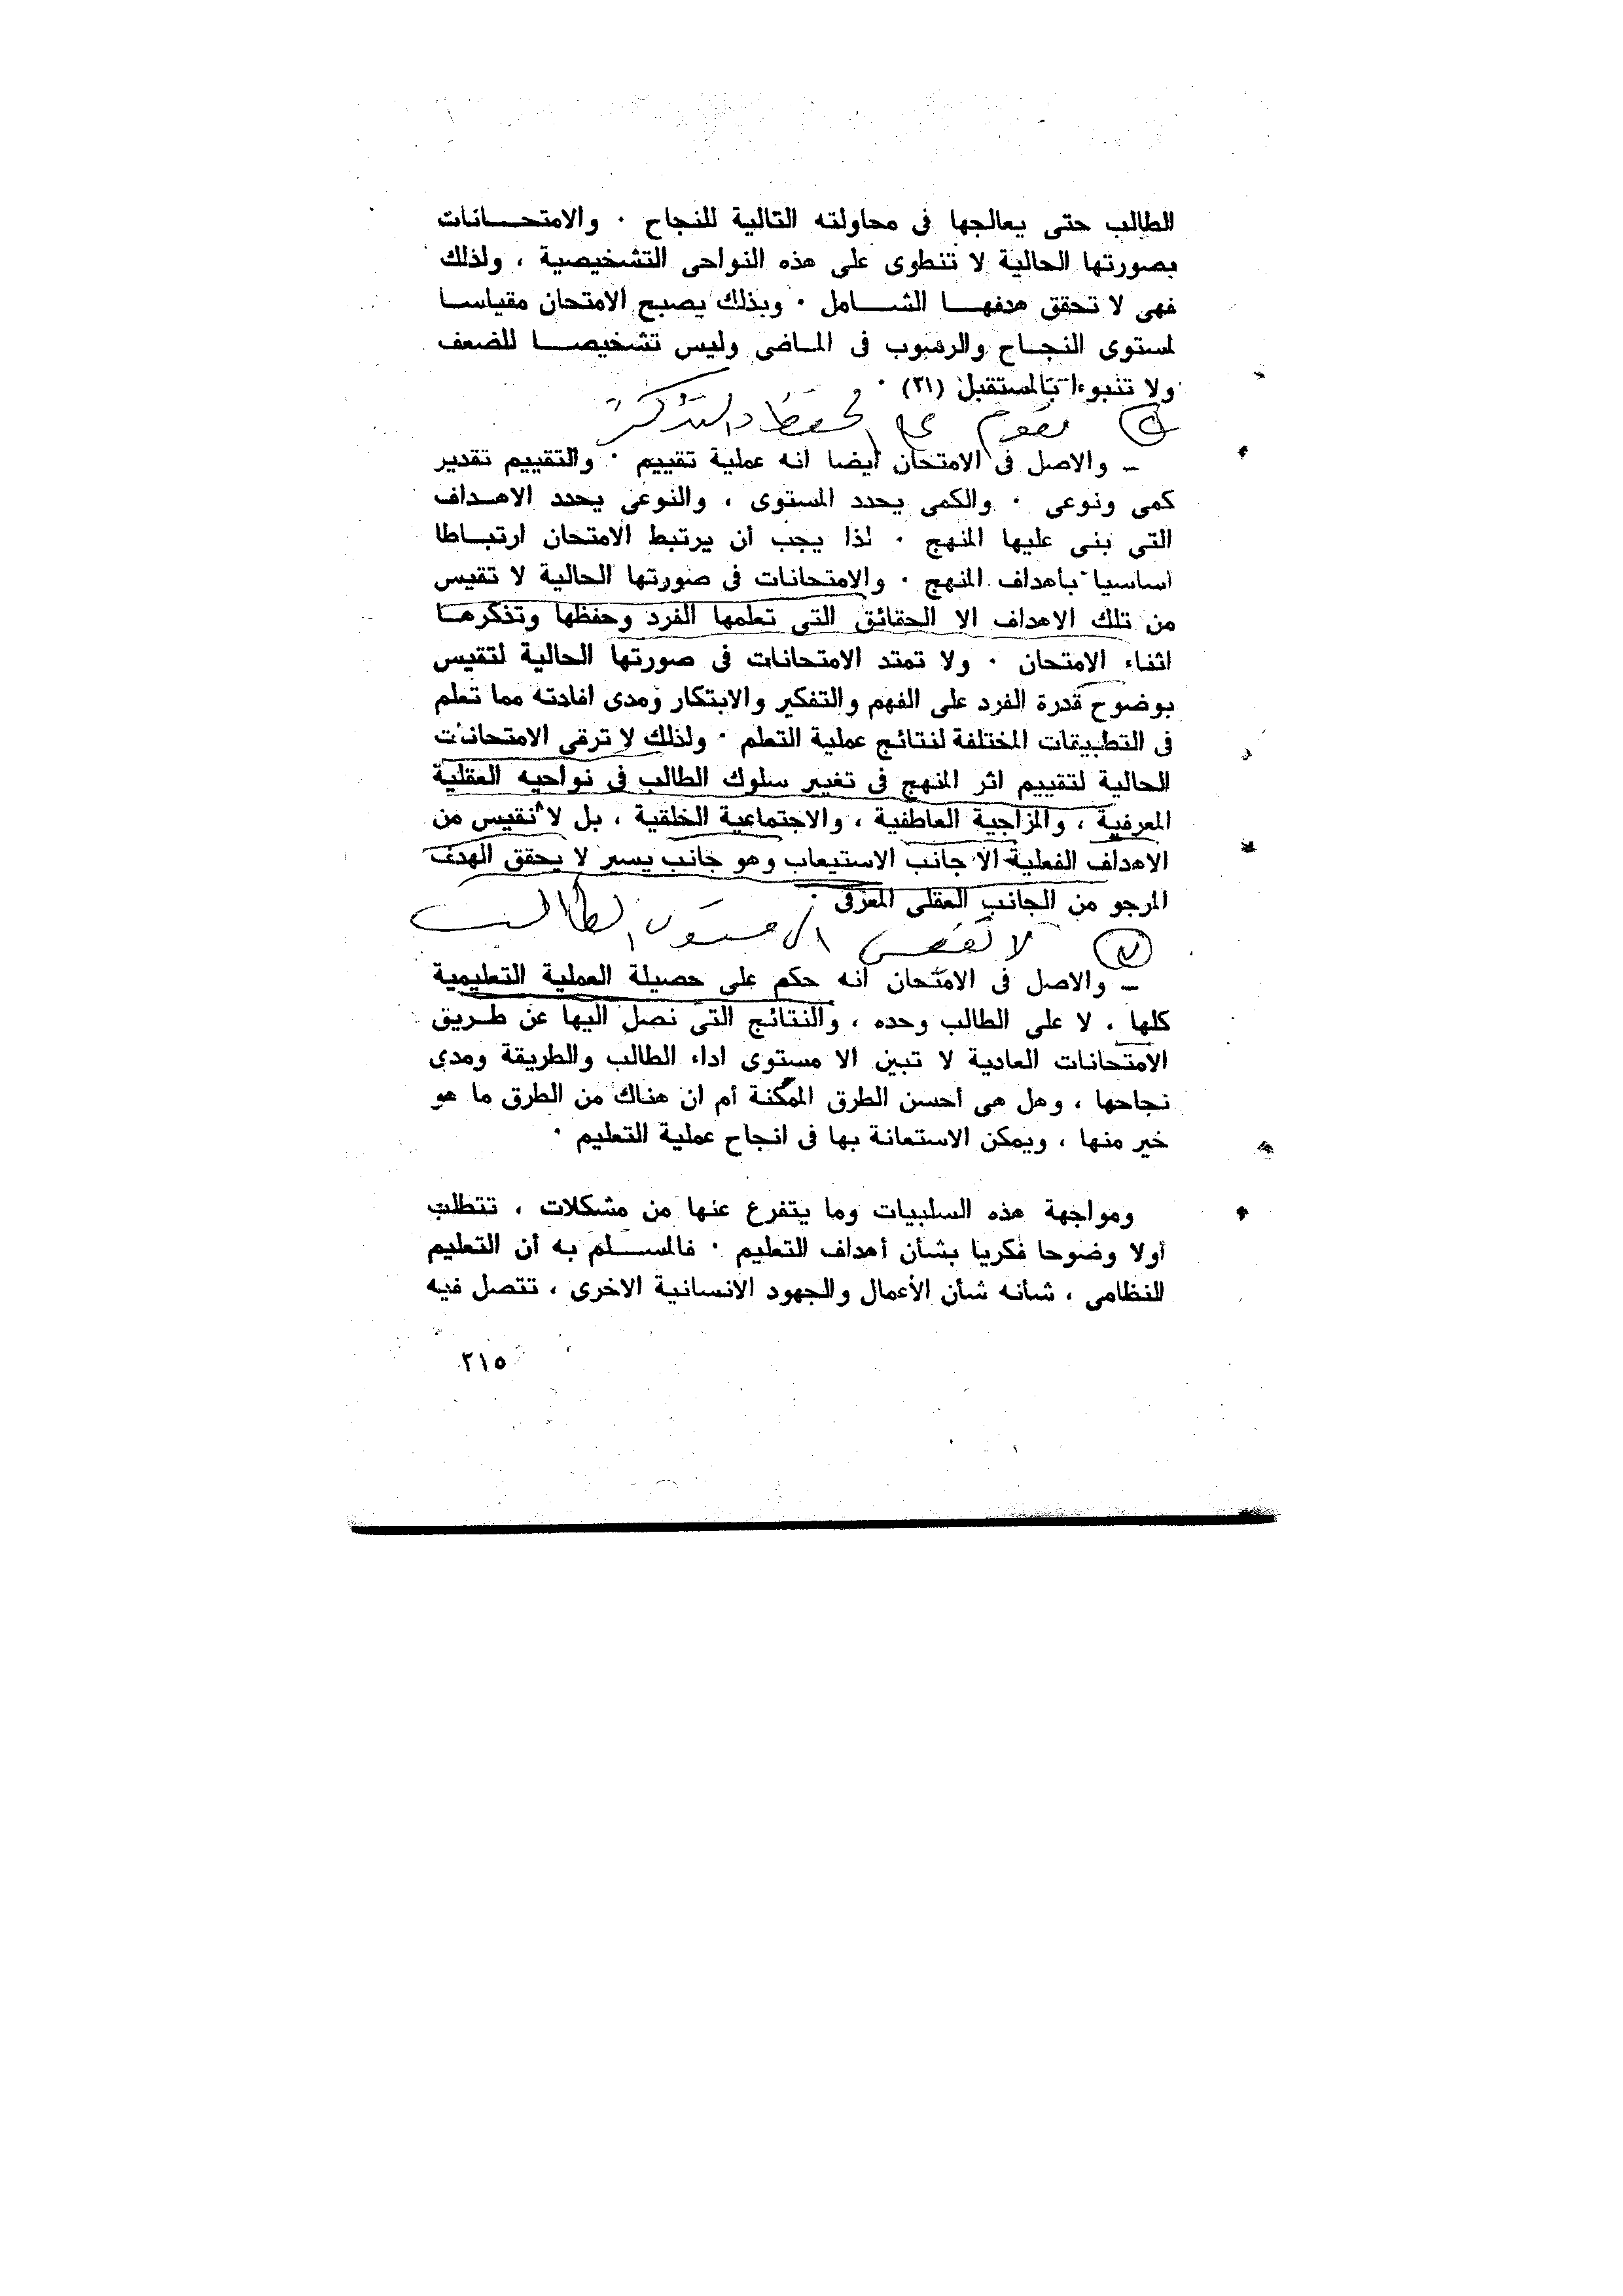 الطالب حتى يعالجها فى محاولته التالية للنجاح ٠ والامتحـــانات
بصورتها الحالية لا تنطوى على هذه النواحى التشخيصية ، ولذلك
فهى لا تحقق هدفهـــا الشـــامل ٠ وبذلك يصبح الامتحان مقياسـا
لمستوى النجـاح والرسوب فى المـاضى وليس تشخيصـــا للضعف
ولا تنبوءا بالمستقبل (٣١) ٠
يقوم على الحفظ والتذكر
ـ والاصل فى الامتحان ايضا انه عملية تقييم ٠ والتقييم تقدير
كمى ونوعى ٠ والكمى يحدد المستوى ، والنوعى يحدد الاهـداف
التى بنى عليها المنهج ٠ لذا يجب أن يرتبط الامتحان ارتبـاطا
اساسيا بأهداف المنهج ٠ والامتحانات فى صورتها الحالية لا تقيس
من تلك الاهداف الا الحقائق التى تعلمها الفرد وحفظها وتذكرهـا
اثناء الامتحان ٠ ولا تمتد الامتحانات فى صورتها الحالية لتقيس
بوضوح قدرة الفرد على الفهم والتفكير والابتكار ومدى افادته مما تعلم
فى التطبيقات المختلفة لنتائج عملية التعلم ٠ ولذلك لا ترقى الامتحانات
الحالية لتقييم اثر المنهج فى تغيير سلوك الطالب فى نواحيه العقلية
المعرفية ، والمزاجية العاطفية ، والاجتماعية الخلقية ، بل لا نقيس من
الاهداف الفعلية الا جانب الاستيعاب وهو جانب يسير لا يحقق الهدف
المرجو من الجانب العقلى المعرفى ٠
٧ لا تقيس الا مستوى الطالب
ـ والاصل فى الامتحان انه حكم على حصيلة العملية التعليمية
كلها ، لا على الطالب وحده ، والنتائج التى نصل اليها عن طـريق
الامتحانات العادية لا تبين الا مستوى اداء الطالب والطريقة ومدى
نجاحها ، وهل هى أحسن الطرق الممكنة أم ان هناك من الطرق ما هو
خير منها ، ويمكن الاستعانة بها فى انجاح عملية التعليم ٠
ومواجهة هذه السلبيات وما يتفرع عنها من مشكلات ، تتطلب
أولا وضوحا فكريا بشأن أهداف التعليم ٠ فالمســـلم به أن التعليم
النظامى ، شأنه شأن الأعمال والجهود الانسانية الاخرى ، تتصل فيه
٢١٥